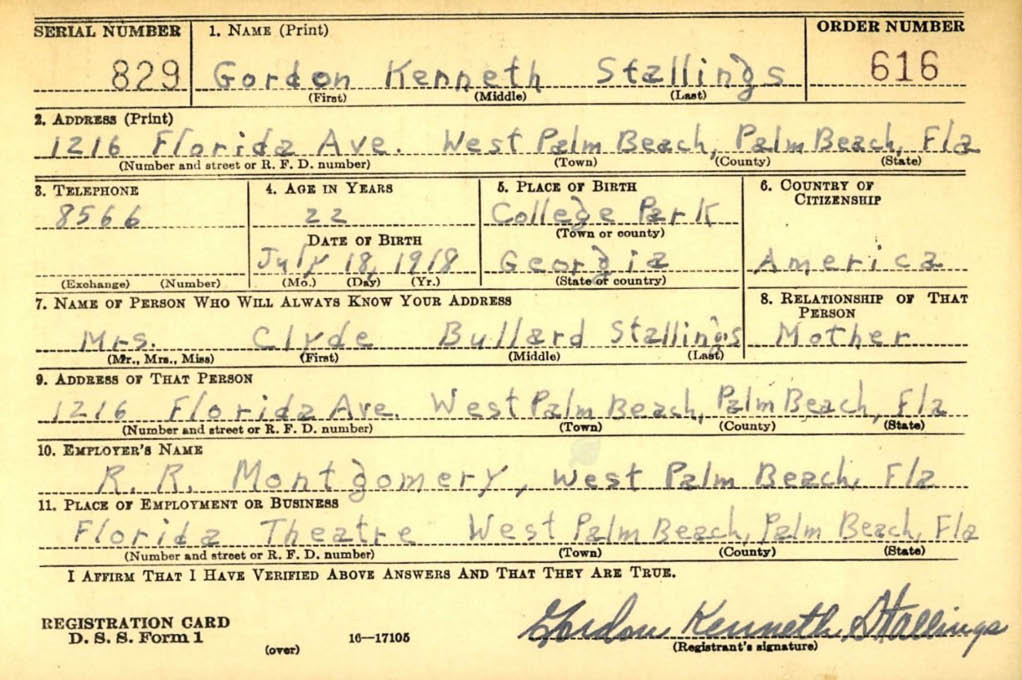 SERIAL NUMBER 1. NAME (Print) ORDER NUMBER
829 Gordon Kenneth Stallings 616
(First) (Middle) (Last)
2. ADDRESS (Print)
1216 Florida Ave. West Palm Beach, Palm Beach, Fla
(Number and street or R. F. D. number) (Town) (County) (State)
3. TELEPHONE 4. AGE IN YEARS 5. PLACE OF BIRTH 6. COUNTRY OF CITIZENSHIP
8566 22 College Park
(Town or county)
DATE OF BIRTH
July 18, 1918 Georgia America
(Exchange) (Number) (Mo.) (Day) (Yr.) (State or country)
7. NAME OF PERSON WHO WILL ALWAYS KNOW YOUR ADDRESS 8. RELATIONSHIP OF THAT PERSON
Mrs. Clyde Bullard Stallings Mother
(Mr., Mrs., Miss) (First) (Middle) (Last)
9. ADDRESS OF THAT PERSON
1216 Florida Ave. West Palm Beach, Palm Beach, Fla
(Number and street or R. F. D. number) (Town) (County) (State)
10. EMPLOYER'S NAME
R. R. Montgomery, West Palm Beach, Fla
11. PLACE OF EMPLOYMENT OR BUSINESS
Florida Theatre West Palm Beach, Palm Beach, Fla
(Number and street or R. F. D. number) (Town) (County) (State)
I AFFIRM THAT I HAVE VERIFIED ABOVE ANSWERS AND THAT THEY ARE TRUE.
REGISTRATION CARD
D. S. S. Form 1 16—17105 Gordon Kenneth Stallings
(over) (Registrant's signature)